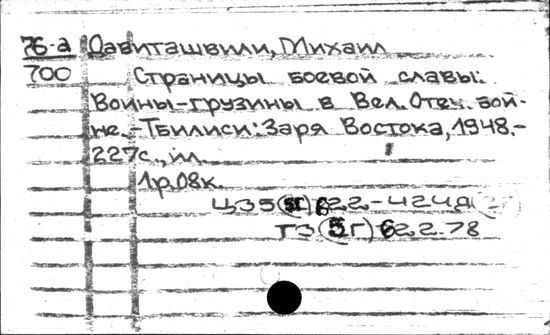 76-а Давиташвили, Михаил
700 Страницы боевой славы.
Воины-грузины в Вел. Отеч. вой-
не.-Тбилиси: Заря Востока, 1948.-
227с., ил.
1р.08к.
Ц35(5Г)622-4я
Т3(5Г)622.78